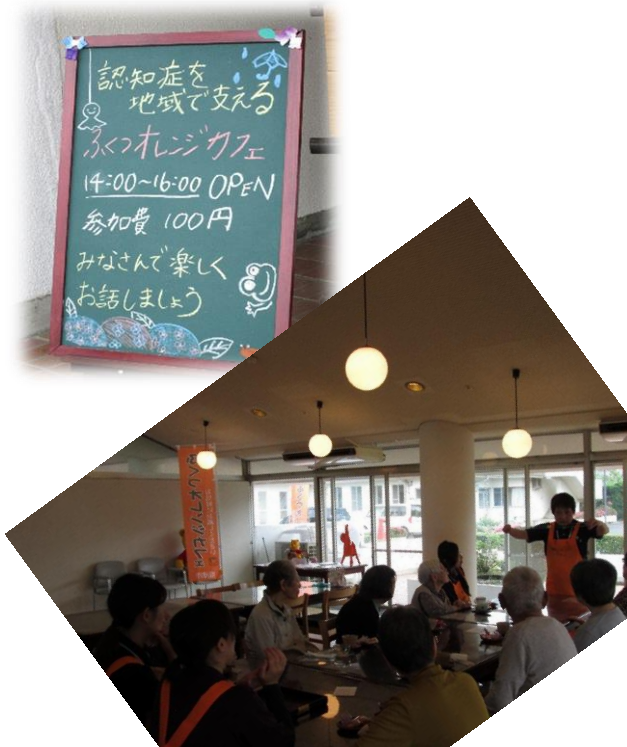 認知症を
地域で支える
ふくつオレンジカフェ
14:00~16:00 OPEN
参加費 100円
みなさんで楽しく
お話しましょう
ふくつオレンジカフェ